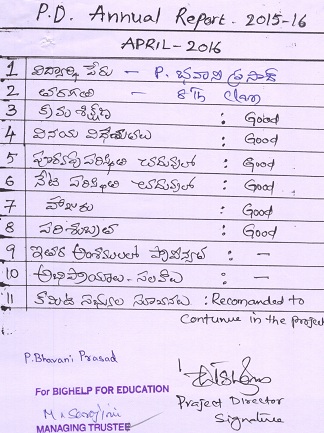 P.D. Annual Report. 2015-16
APRIL-2016
1 విద్యార్థి పేరు - P. భవాని ప్రసాద్
2 తరగతి - 8Th Class
3 క్రమశిక్షణ : Good
4 వినయ విధేయతలు : Good
5 పూర్వపు పరిస్థితి చదువులో : Good
6 నేటి పరిస్థితి చదువులో : Good
7 హాజరు : Good
8 పరిశుభ్రత : Good
9 ఇతర అంశములలో ప్రావీణ్యత : -
10 అభిప్రాయాలు - సలహాలు : -
11 కమిటి సభ్యుల సూచనలు : Recomanded to
Contunue in the project
P.Bhavani Prasad
For BIGHELP FOR EDUCATION
MANAGING TRUSTEE
Praject Director
Signature